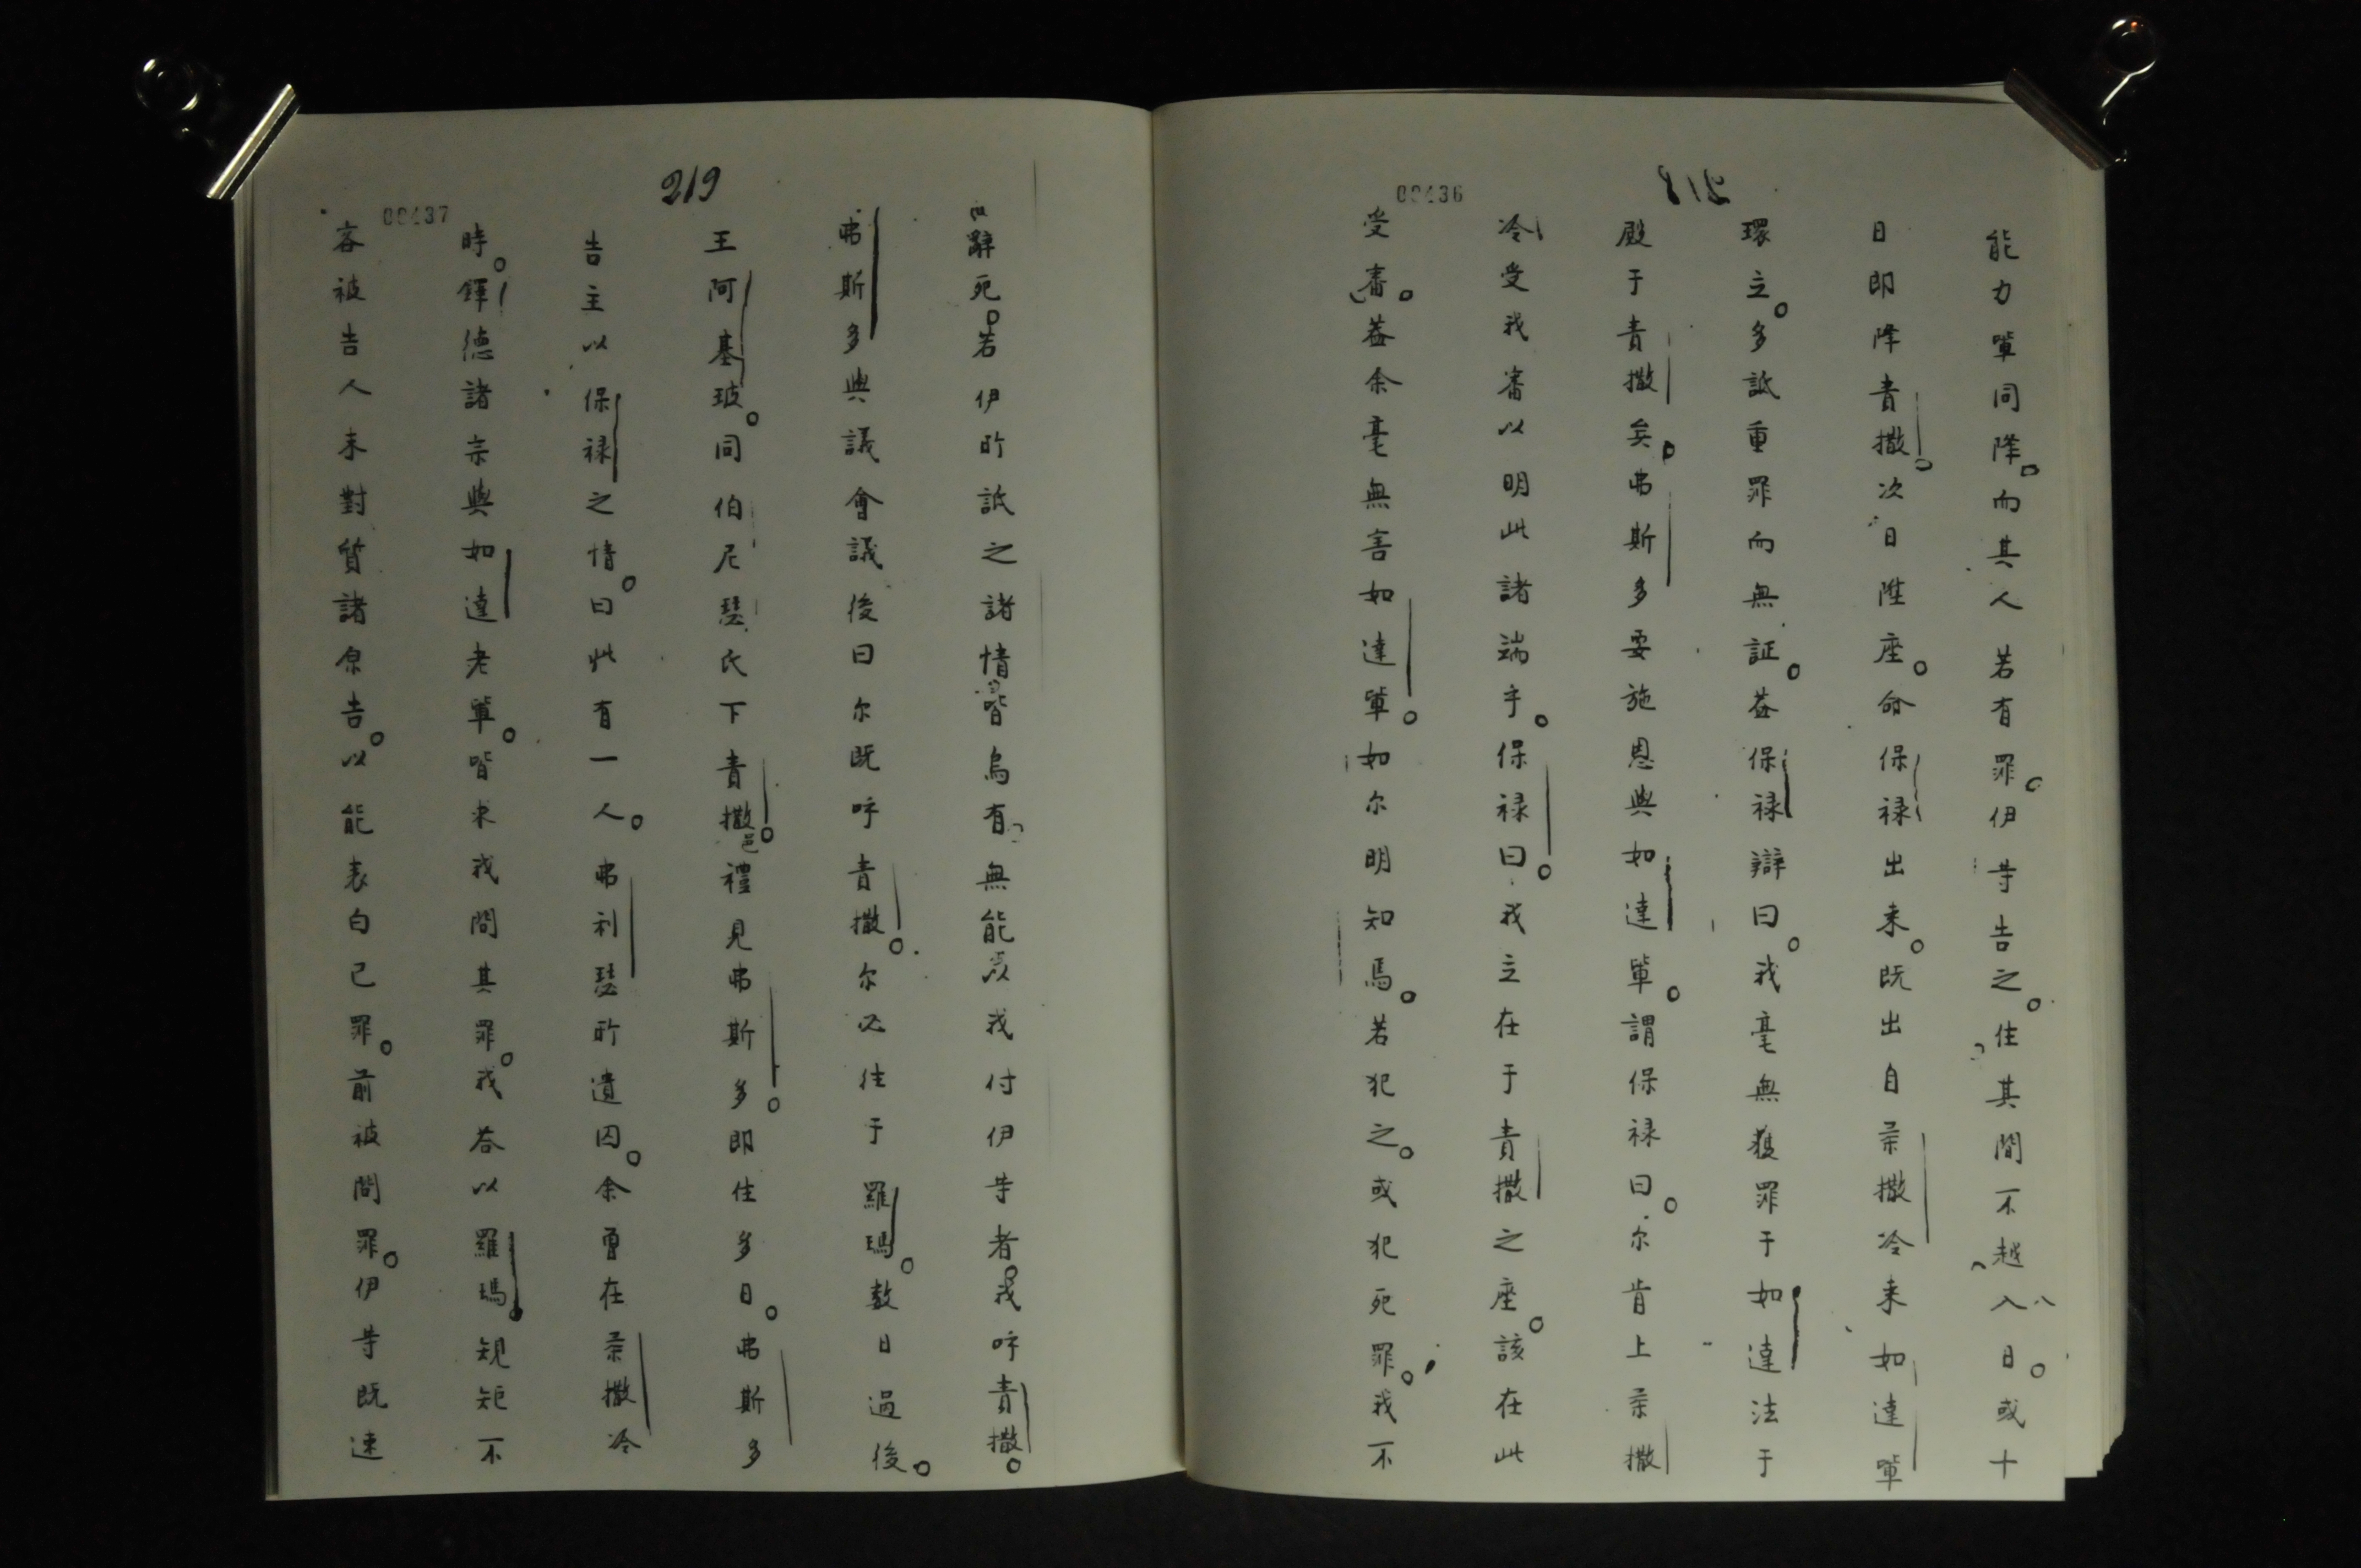 218
00436
能力軰同降。而其人若有罪。伊等告之。住其間不越八日。或十
日即降責撒。次日陞座。命保禄出来。既出自柔撒冷来如達軰
環立。多詆重罪而無証。盖保禄辯曰。我毫無獲罪于如達法于
殿于責撒矣。弗斯多要施恩與如達軰。謂保禄曰。尔肯上柔撒
冷受我審以明此諸端乎。保禄曰。我立在于責撒之座。該在此
受審。盖余毫無害如達軰。如尔明知焉。若犯之。或犯死罪。我不
219
00437
辭死。若伊所詆之諸情皆烏有。無能以我付伊等者。我呼責撒。
弗斯多與議會議後曰尔既呼責撒。尔必往于羅瑪。数日過後。
王阿基玻。同伯尼瑟氏下責撒邑。禮見弗斯多。即住多日。弗斯多
告主以保禄之情。曰此有一人。弗利瑟所遺囚。余曾在柔撒冷
時。鐸德諸宗與如達老軰。皆求我問其罪。我荅以羅瑪。規矩不
容被告人未對質諸原告。以能表白己罪。前被問罪。伊等既速